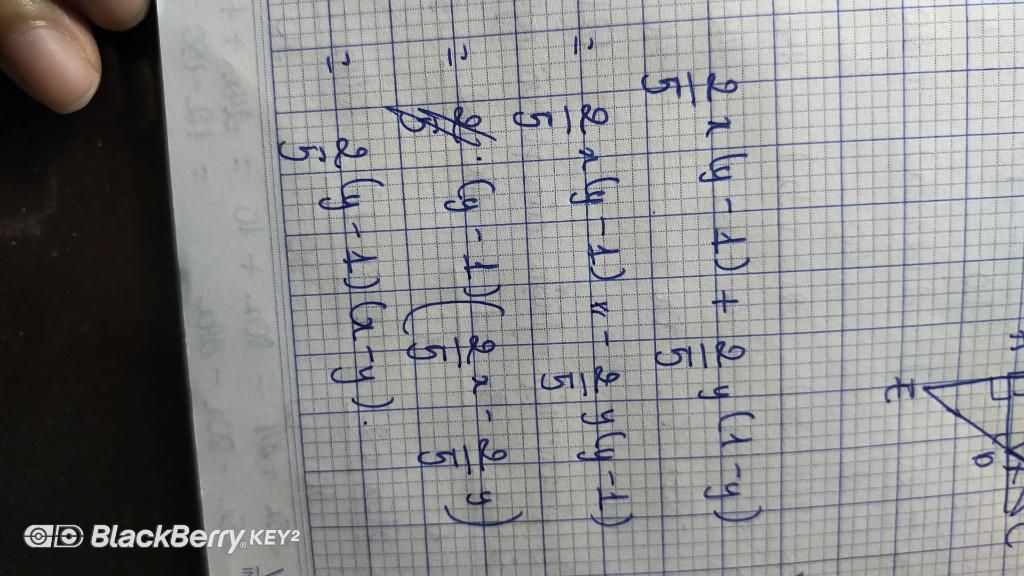 2/5 x(y-1) + 2/5 y(1-y)
= 2/5 x(y-1) - 2/5 y(y-1)
= (y-1)(2/5 x - 2/5 y)
= 2/5 (y-1)(x-y).
E
D
C
BlackBerry KEY²